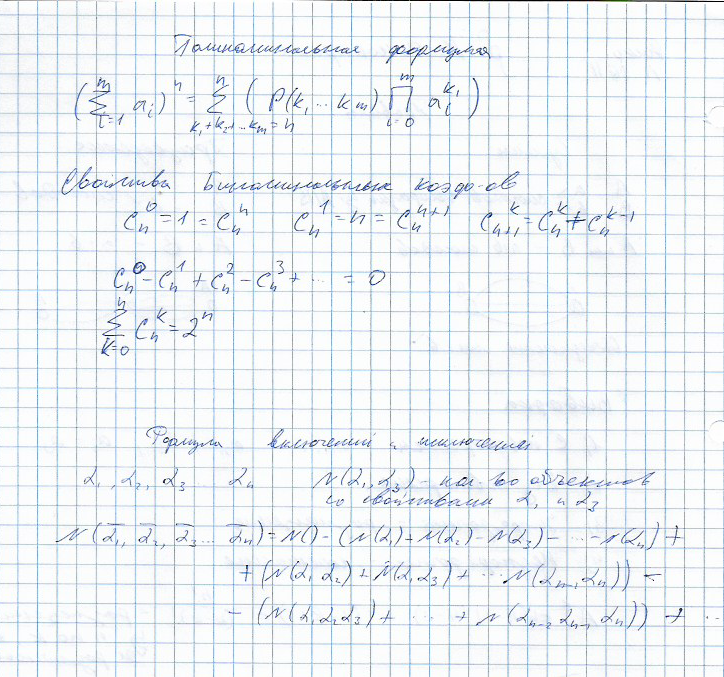 Полиномиальная формула
(∑_{i=1}^{m} a_i)^n = ∑_{k_1+k_2+...k_m=n}^{n} ( P(k_1 ... k_m) ∏_{i=0}^{m} a_i^{k_i} )
Свойства Биномиальных коэф-ов
C_n^0 = 1 = C_n^n C_n^1 = n = C_n^{n+1} C_{n+1}^k = C_n^k + C_n^{k-1}
C_n^0 - C_n^1 + C_n^2 - C_n^3 + ... = 0
∑_{k=0}^{n} C_n^k = 2^n
Формула включений и исключений
α_1, α_2, α_3 ... α_n N(α_1, α_3) - кол-во объектов
со свойствами α_1 и α_3
N(ᾱ_1, ᾱ_2, ᾱ_3 ... ᾱ_n) = N() - (N(α_1) + N(α_2) - N(α_3) - ... - N(α_n) +
+ (N(α_1 α_2) + N(α_1 α_3) + ... N(α_{n-1} α_n)) -
- (N(α_1 α_2 α_3) + ... + N(α_{n-2} α_{n-1} α_n)) + ...